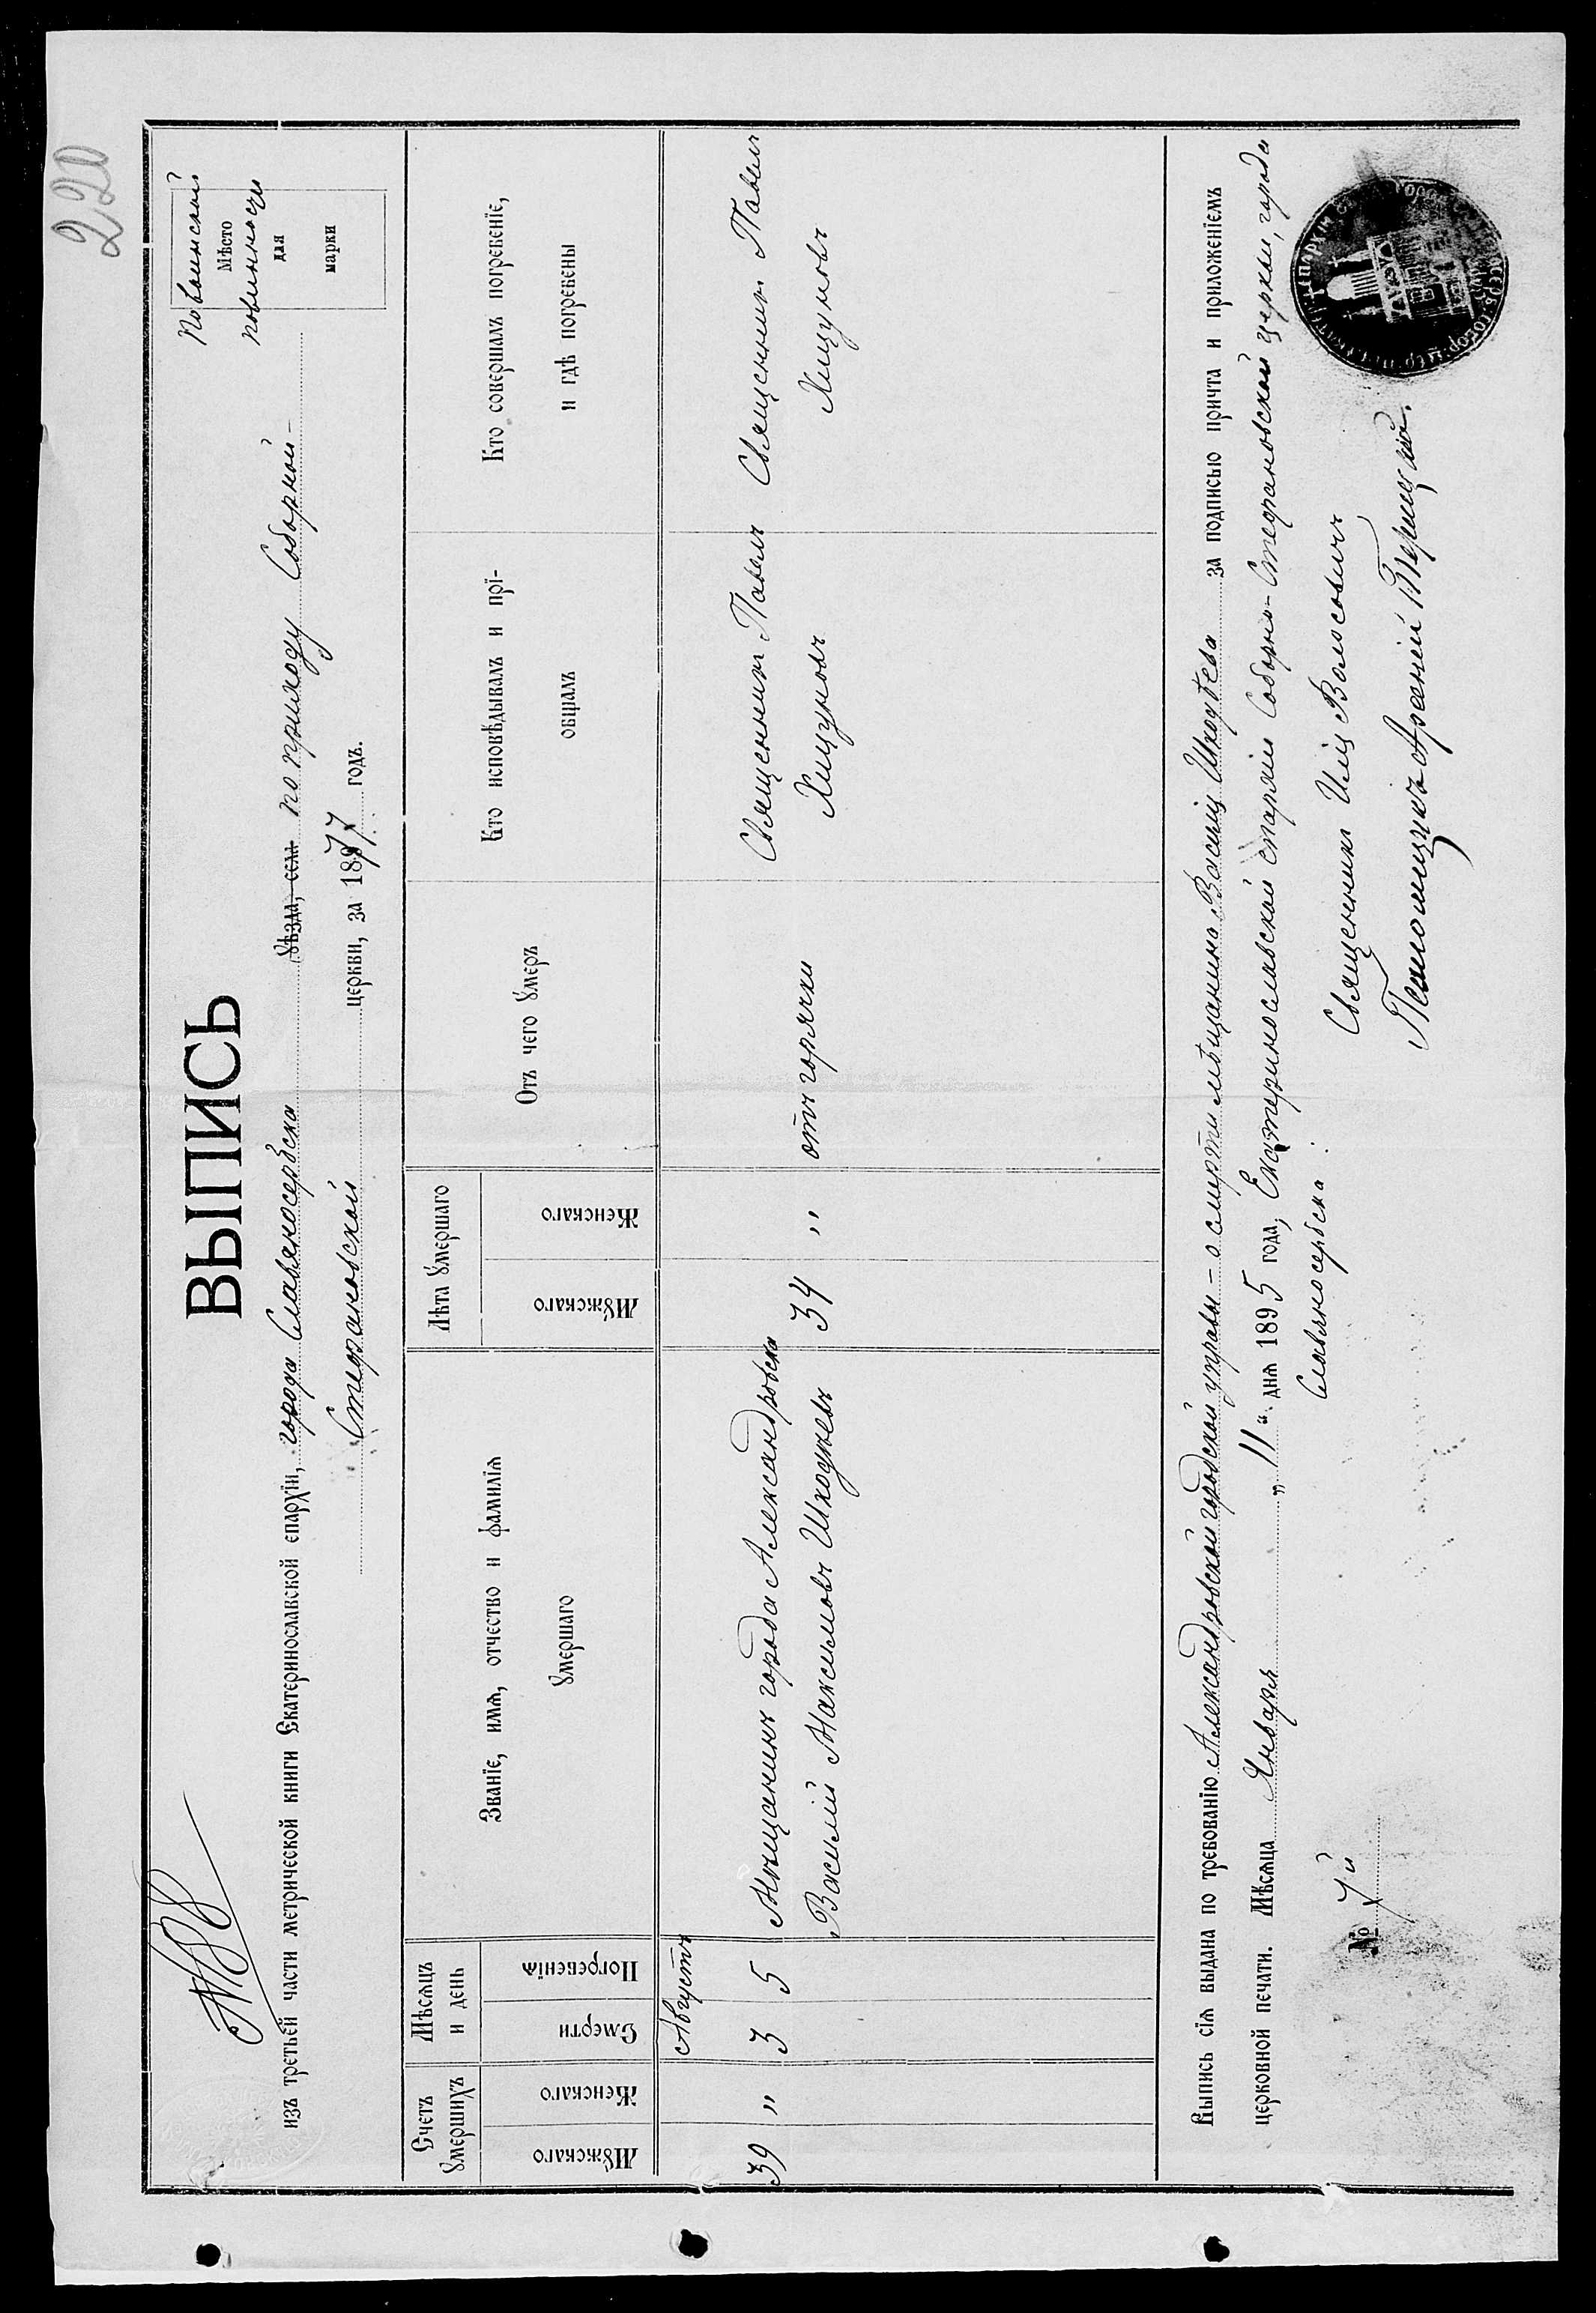 220
По воинской
повинности
Мѣсто
для
марки
ВЫПИСЬ
изъ третьей части метрической книги Екатеринославской епархіи, города Славяносербска уѣзда, села по приходу Соборной-
Стефановской церкви, за 1877 годъ.
Счетъ умершихъ
Мужскаго
Женскаго
Мѣсяцъ и день
Смерти
Погребенія
Званіе, имя, отчество и фамилія
умершаго
Лѣта умершаго
Мужскаго
Женскаго
Отъ чего умеръ
Кто исповѣдывалъ и прі-
общалъ
Кто совершалъ погребеніе,
и гдѣ погребены
Августъ
39 „ 3 5 Мѣщанинъ города Александровска
Василій Максимовъ Шкодуевъ
34 „ отъ горячки
Священникъ Павелъ
Хицуновъ
Священникъ Павелъ
Хицуновъ
Выпись сія выдана по требованію Александровской городской управы – о смерти мѣщанина Василія за подписью причта и приложеніемъ
церковной печати. Мѣсяца Января „11“ дня 1895 года, Екатеринославской епархіи Соборно-Стефановской церкви, города
Славяносербска:
Священникъ Илія Волосовичъ
Псаломщикъ Арсеній
№ 7й